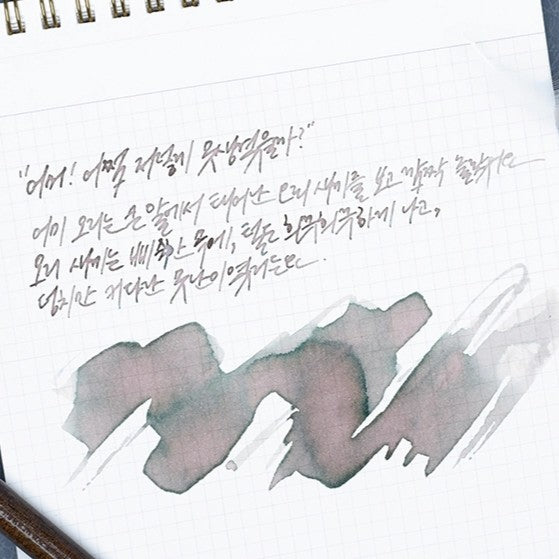 "어머! 어쩜 저렇게 못생겼을까?"
어미 오리는 큰 알에서 태어난 오리 새끼를 보고 깜짝 놀랐어요
오리 새끼는 삐쩍 마른 목에, 털은 희끄무레하게 나고,
덩치만 커다란 못난이였거든요.